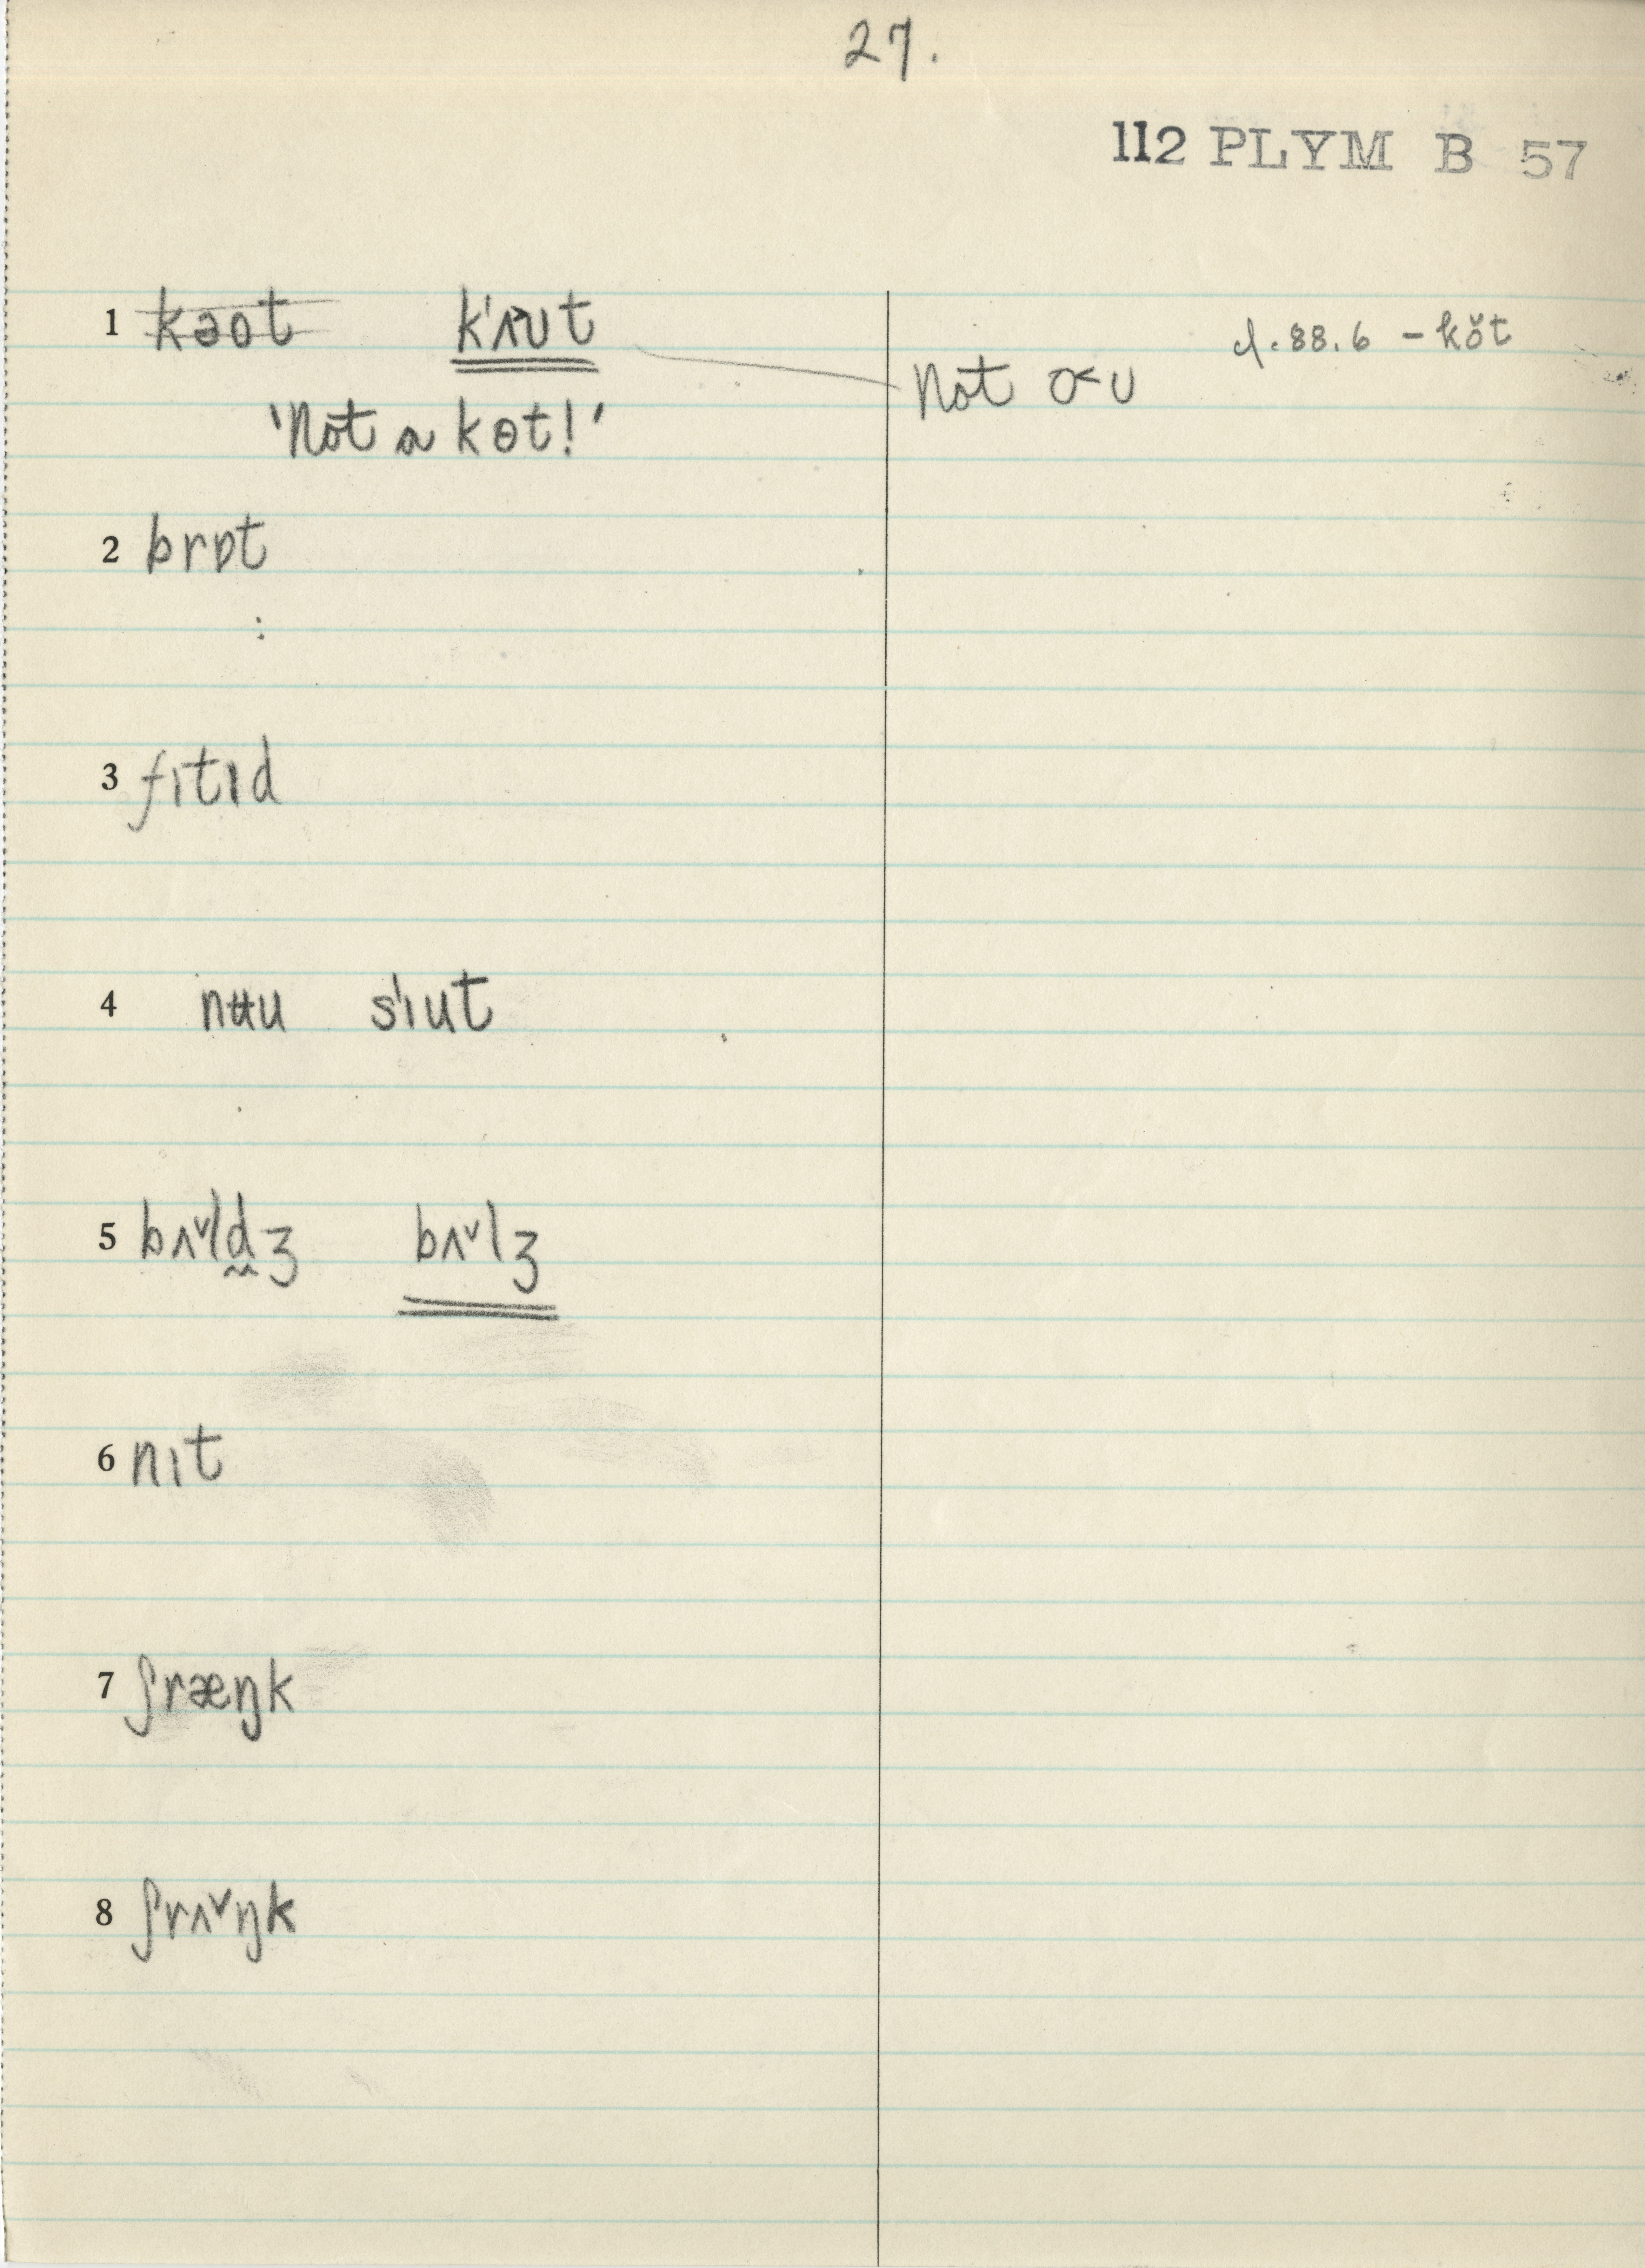 27.
112 PLYM B 57
1 ~~kəot~~ kʻʌ˃ʊt
cf. 88.6 – kŏt
Not o˂ʊ
'Not a kɵt!'
2 brɒt
3 fɪtɪd
4 nʉu sʻɪut
5 bʌ˅ld̰ʒ bʌ˅lʒ
6 nɪt
7 ʃræŋk
8 ʃrʌ˅ŋk